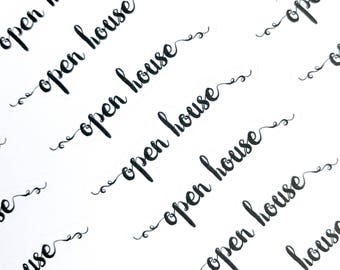 open house
open house
open house
open house
open house
open house
open house
open house
house